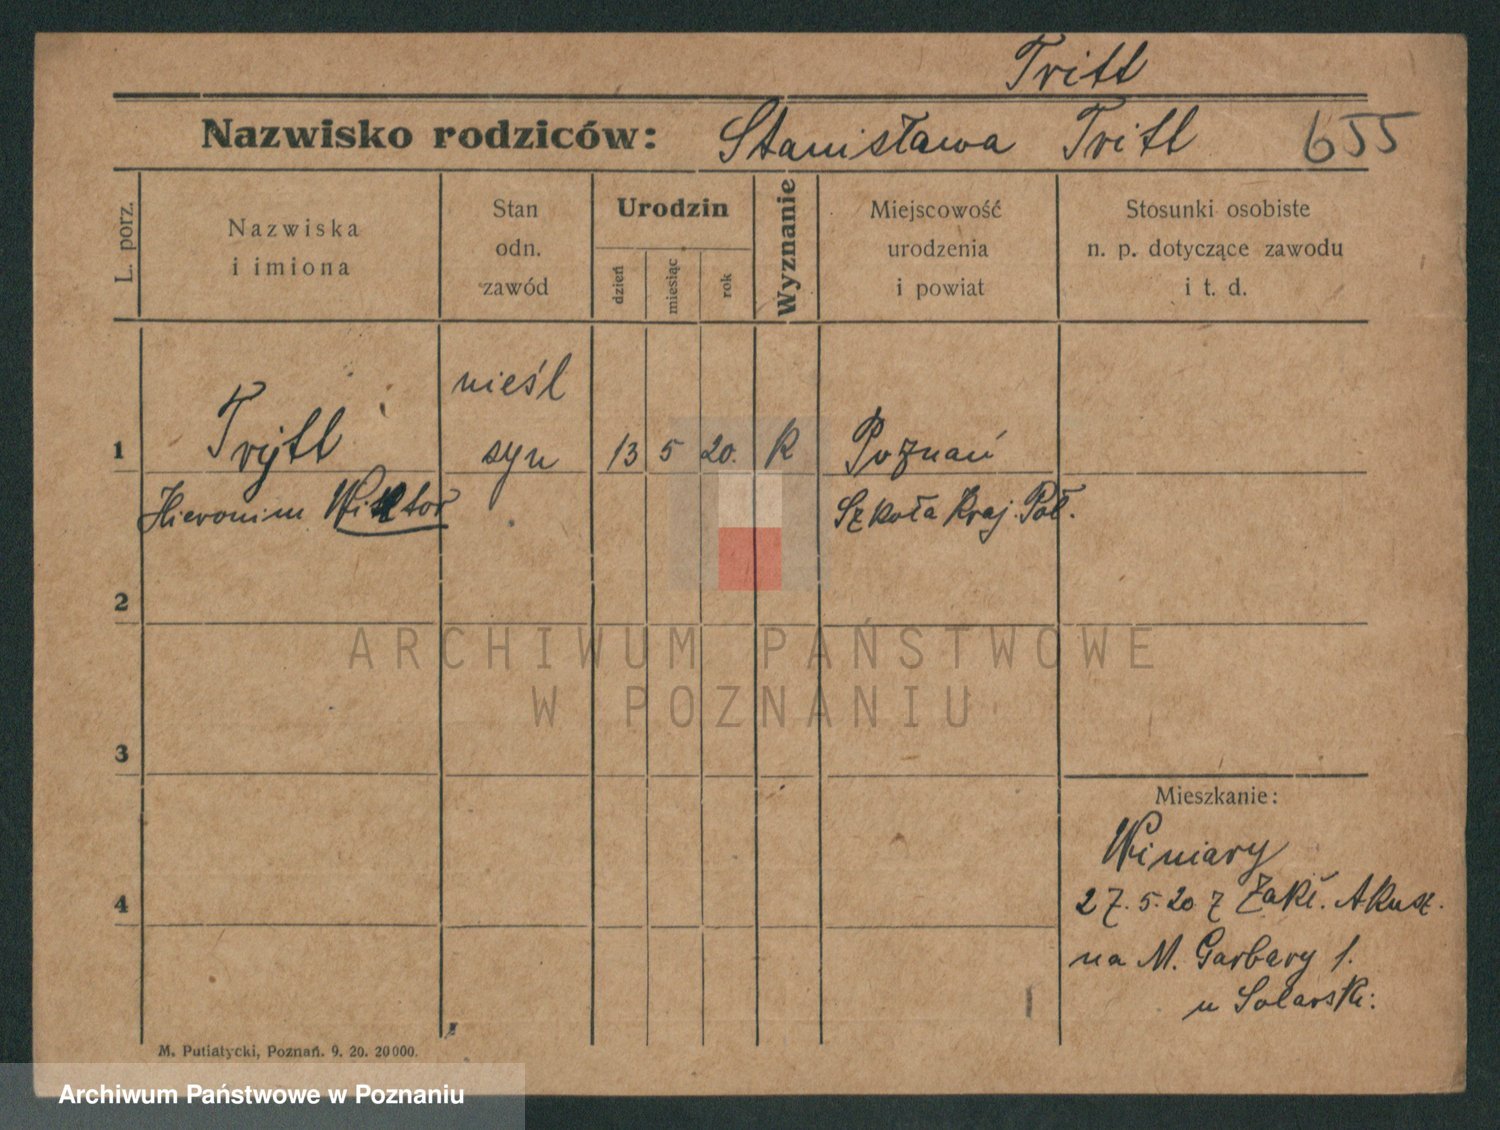 Tritt
Nazwisko rodziców: Stanisława Tritt 655
L. porz.
Nazwiska
i imiona
Stan
odn.
zawód
Urodzin
dzień
miesiąc
rok
Wyznanie
Miejscowość
urodzenia
i powiat
Stosunki osobiste
n. p. dotyczące zawodu
i t. d.
1 Trytt nieśl syn 13 5 20. K Poznań
Hieronim Wiktor Szkoła Kraj. Poł.
2
3
4
Mieszkanie:
Winiary
27.5.20 z Zakł. Akusz.
na M. Garbary 1.
u Solarski:
M. Putiatycki, Poznań. 9. 20. 20000.
ARCHIWUM PAŃSTWOWE
W POZNANIU
Archiwum Państwowe w Poznaniu